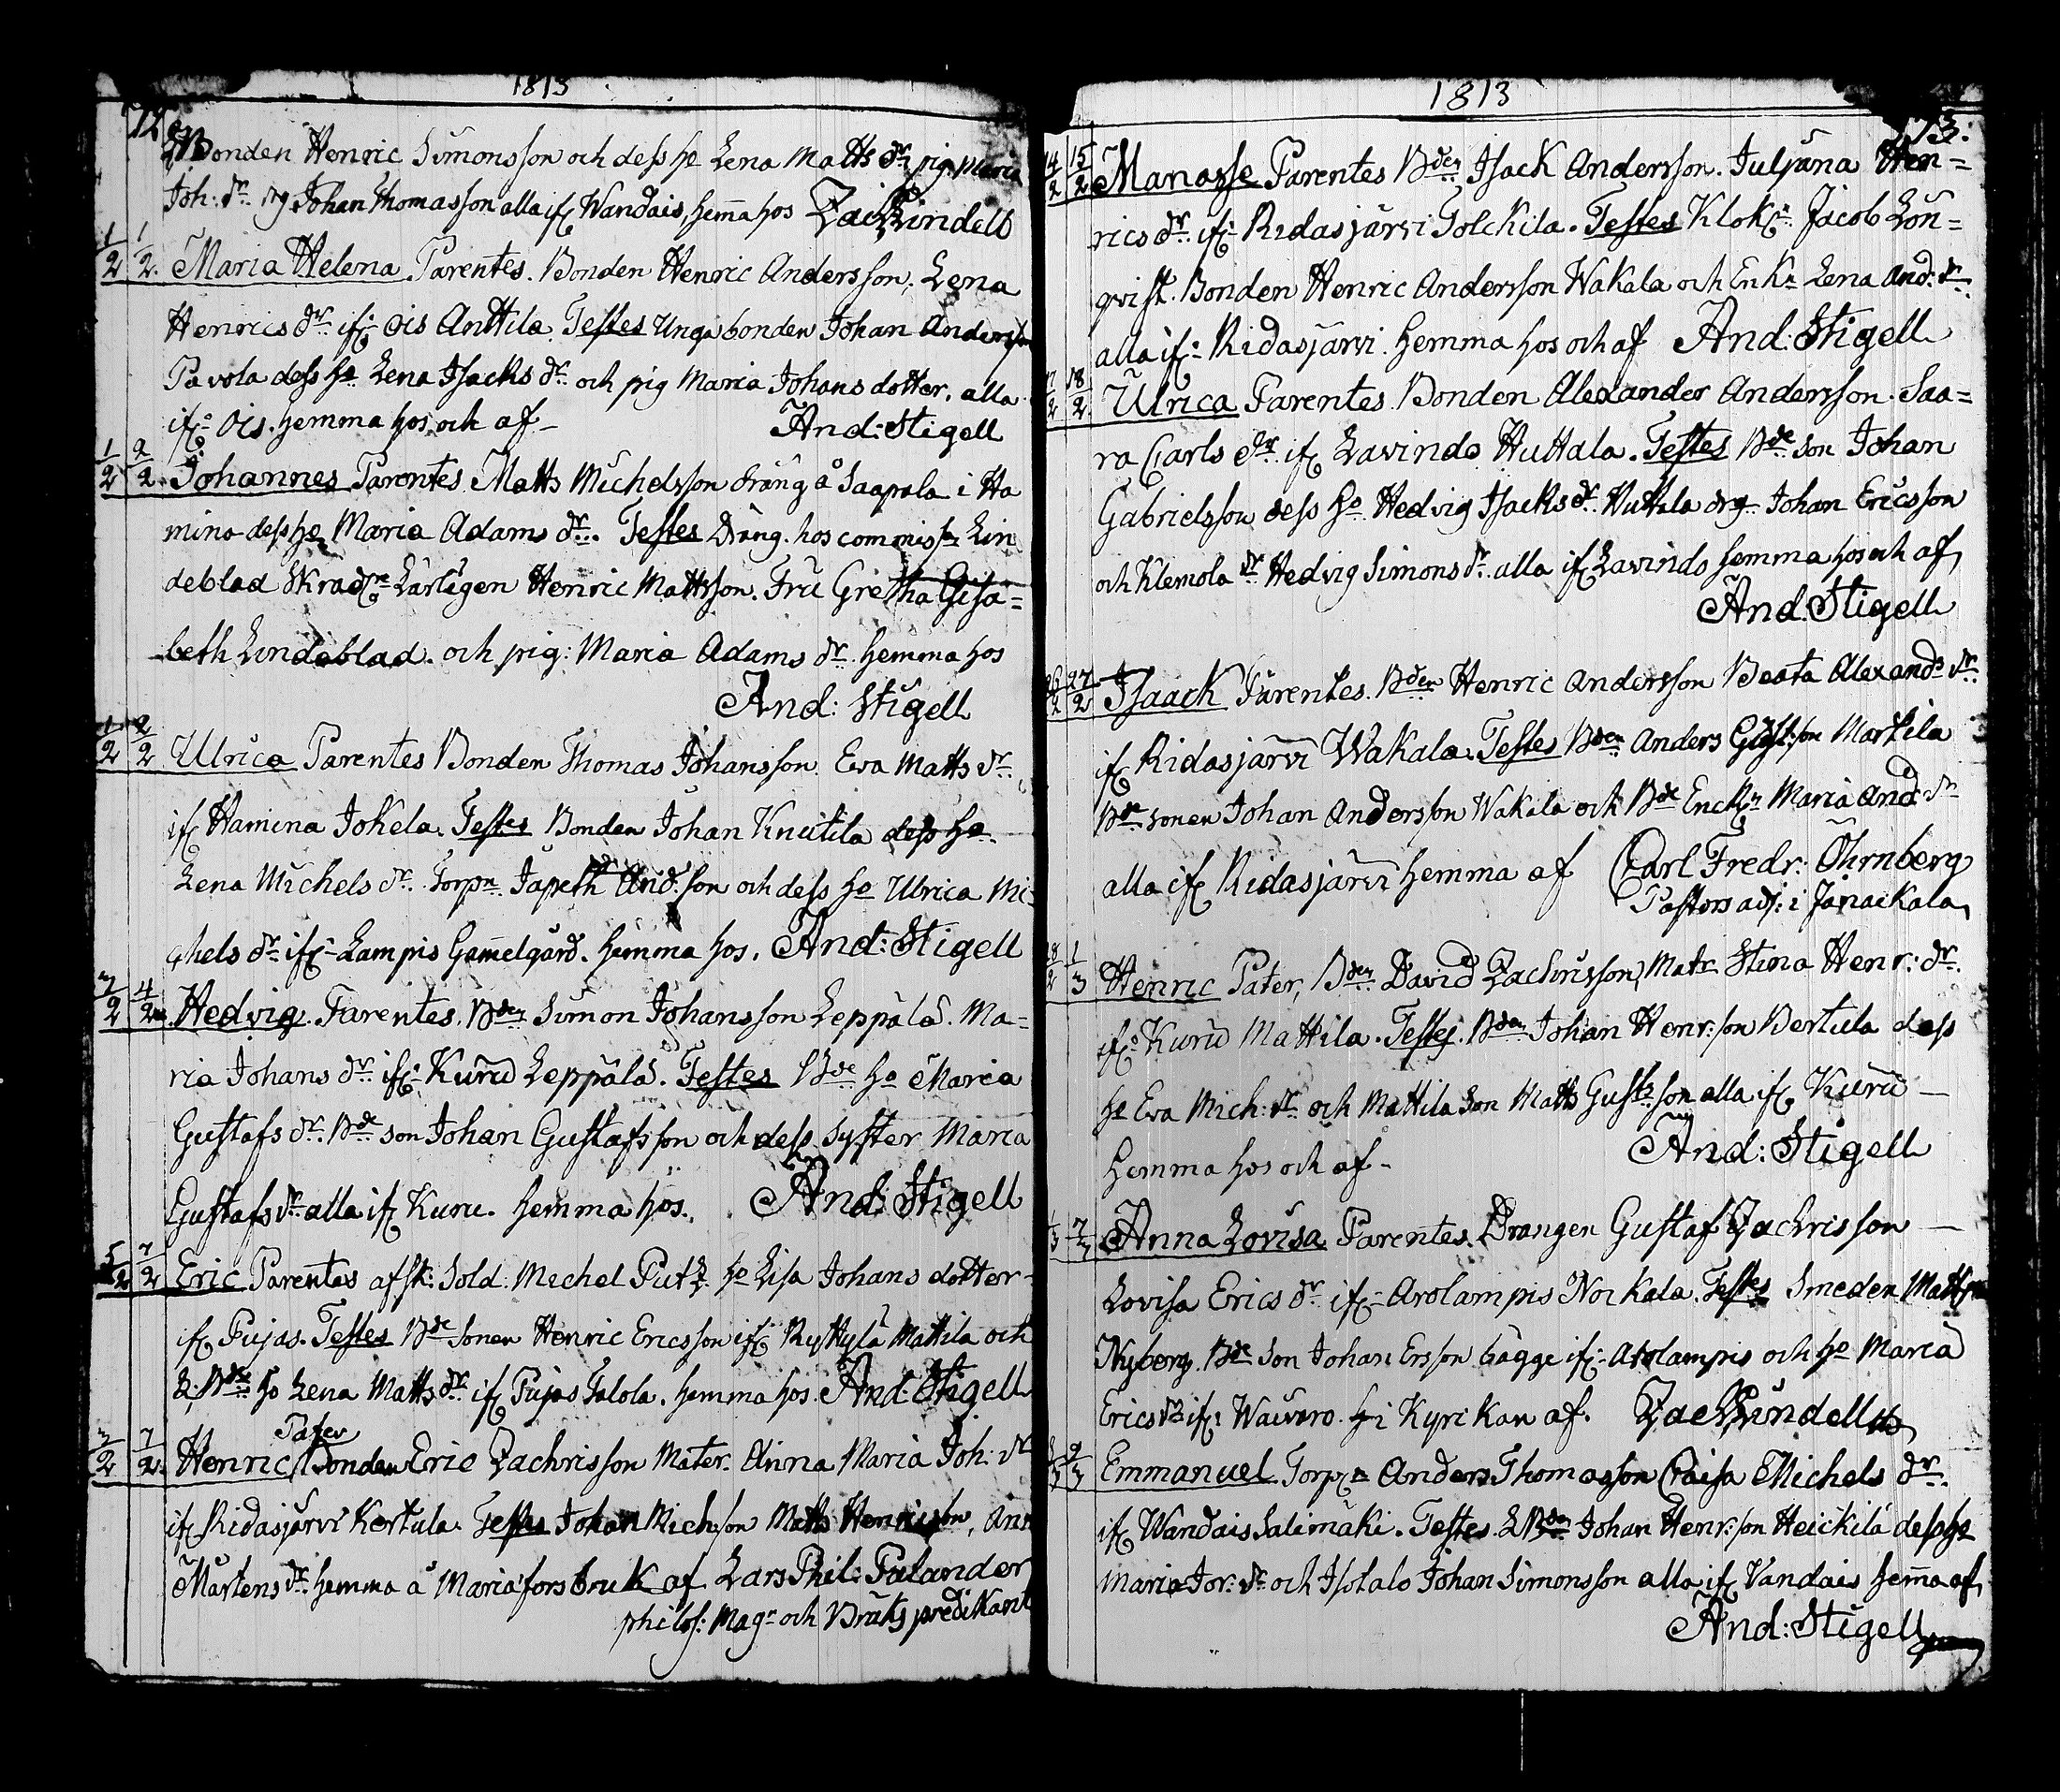 1813
72
Bonden Henric Simonsson och dess ho Lena Matts dr. pig. Maria
Joh: dr. Johan Thomasson alla ifr Wandais, hemma hos Zac Lindell
1/2 1/2 Maria Helena Parentes. Bonden Henric Andersson. Lena
Henrics dr. ifr. Ois Anttila. Testes Unga bonden Johan Andersson
Pavola dess ho Lena Isacks dr. och pig Maria Johans dotter. alla
ifr: Ois. hemma hos och af And: Stigell
1/2 2/2 Johannes Parentes Matts Michelsson dräng å Saapala i Ha
mina dess ho Maria Adams dr. Testes Dräng. hos commiss. Lin
deblad Skradr Lärligen Henric Mattsson. Fru Gretha Gisa=
beth Lindeblad. och pig: Maria Adams dr. hemma hos
And: Stigell
1/2 2/2 Ulrica Parentes Bonden Thomas Johansson. Eva Matts dr.
ifr Hamina Jokela. Testes Bonden Johan Knutila dess ho
Lena Michels dr. Torpn. Japeth And: son och dess ho Ulrica Mi-
chels dr. ifr. Lampis Gamelgård. hemma hos. And: Stigell
3/2 4/2 Hedvig. Parentes. Bden Simon Johansson Leppälä. Ma=
ria Johans dr. ifr. Kuru Leppälä. Testes Bde ho Maria
Gustafs dr. Bde son Johan Gustafsson och dess syster Maria
Gustafs dr. alla ifr Kuru. hemma hos. And: Stigell
5/2 7/2 Eric Parentes afsk: Sold: Mechel Putz ho Lisa Johans dotter
ifr Pujas. Testes Bde sonen Henric Ericsson ifr. Ryttylä Mattila och
ho Lena Matts dr ifr Pujas Talola. hemma hos. And: Stigell
Pater
3/2 7/2 Henric Bonden Eric Zachrisson Mater. Anna Maria Joh: dr
ifr Ridasjärvi Kertula. Testes Johan Mich:son Matts Henricson, Ann
Mårtens dr. hemma å Mariæfors bruk af Lars Phil: Palander
philos: Magr och Bruks predikant
1813
73:
14/2 15/2 Manasse Parentes Bden Isack Andersson. Juljana Hen=
rics dr. ifr. Ridasjärvi Tolckila. Testes Klokr. Jacob Lön=
qvist. Bonden Henric Andersson Wakala och Enka Lena And: dr.
alla ifr. Ridasjärvi. hemma hos och af And: Stigell
17/2 18/2 Ulrica Parentes. Bonden Alexander Andersson. Saa=
ra Carls dr. ifr Lavindo Huttala. Testes Bde son Johan
Gabrielsson dess ho Hedvig Isacks dr. Huttala drg Johan Ericsson
och Klemola dr Hedvig Simons dr. alla ifr Lavindo hemma hos och af
And: Stigell
26/2 27/2 Isaack Parentes. Bden Henric Andersson Beata Alexands dr.
ifr Ridasjärvi Wakala. Testes Bden Anders Gust:son Markila
Bde sonen Johan Andersson Wakala och Bde Enckn Maria And: dr
alla ifr Ridasjärvi hemma af Carl Fredr: Öhrnberg
Pastors adj: i Janackala
28/2 1/3 Henric Pater, Bden David Zachrisson, Matr Stina Henr: dr.
ifr. Kuru Mattila. Testes. Bden Johan Henr:son Bertula dess
ho Eva Mich: dr. och Mattila son Matts Gusts son alla ifr Kuru
hemma hos och af - And: Stigell
1/3 7/3 Anna Lovisa Parentes. Drangen Gustaf Zachrisson
Lovisa Erics dr. ifr. Arolampis Norkala. Testes Smeden Matts
Nyberg. Bde son Johan Ersson bägge ifr. Arolampis och ho Maria
Erics dr ifr. i Kyrikan af. Zac Lindell
9/3 Emmanuel Torpn Anders Thomasson Caisa Michels dr.
ifr Wandais Salimäki. Testes Bden Johan Henr:son Heickilä dess ho
Maria Jor: dr och Isotalo Johan Simonsson alla ifr Vandais hemma af
And: Stigell